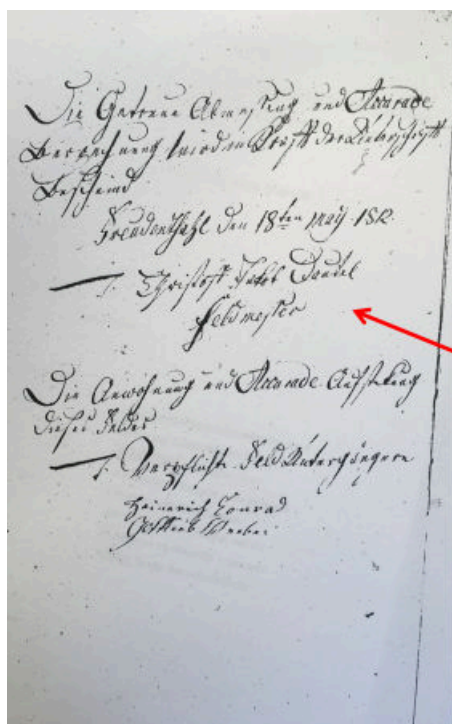 Die Getreue Abmessung und Accurade
Berechnung wird in Krafft der Unterschrifft
Bescheind
Freudenthahl den 18ten May 1812.
T. Christoff Jakob Daudel
Feldmesser
Die Anwohnung und Accurade Aufsteckung
dieses Feldes
T. Verpflichte Feld Untergängere
Heinerich Conrad
Gottlieb